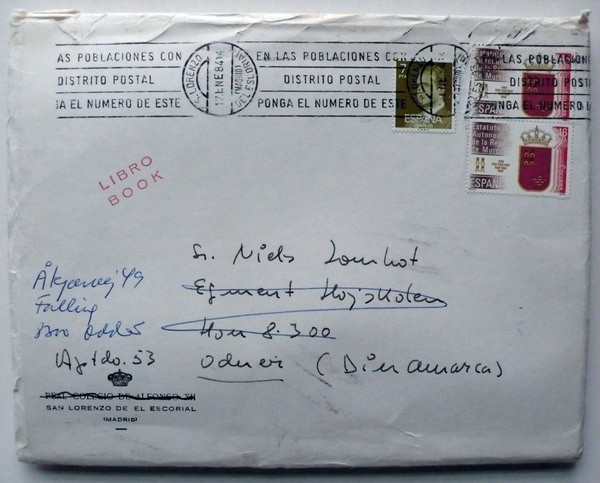 AS POBLACIONES CON
DISTRITO POSTAL
GA EL NUMERO DE ESTE
S. LORENZO
17.ENE 84.14
(MADRID)
DEL ESCORIAL
EN LAS POBLACIONES CON
DISTRITO POSTAL
PONGA EL NUMERO DE ESTE
LAS POBLACION
DISTRITO POSTA
NGA EL NUMERO
ESPAÑA
ESPAÑA
Estatuto
Autonom
de la Re
de Mur
16
ESPAÑA
LIBRO
BOOK
Sr. Niels
Egmont Højskolen
Hou 8.300
Odder (Dinamarca)
49
Falling
8300 Odder
Aptdo. 53
REAL COLEGIO DE ALFONSO XII
SAN LORENZO DE EL ESCORIAL
(MADRID)